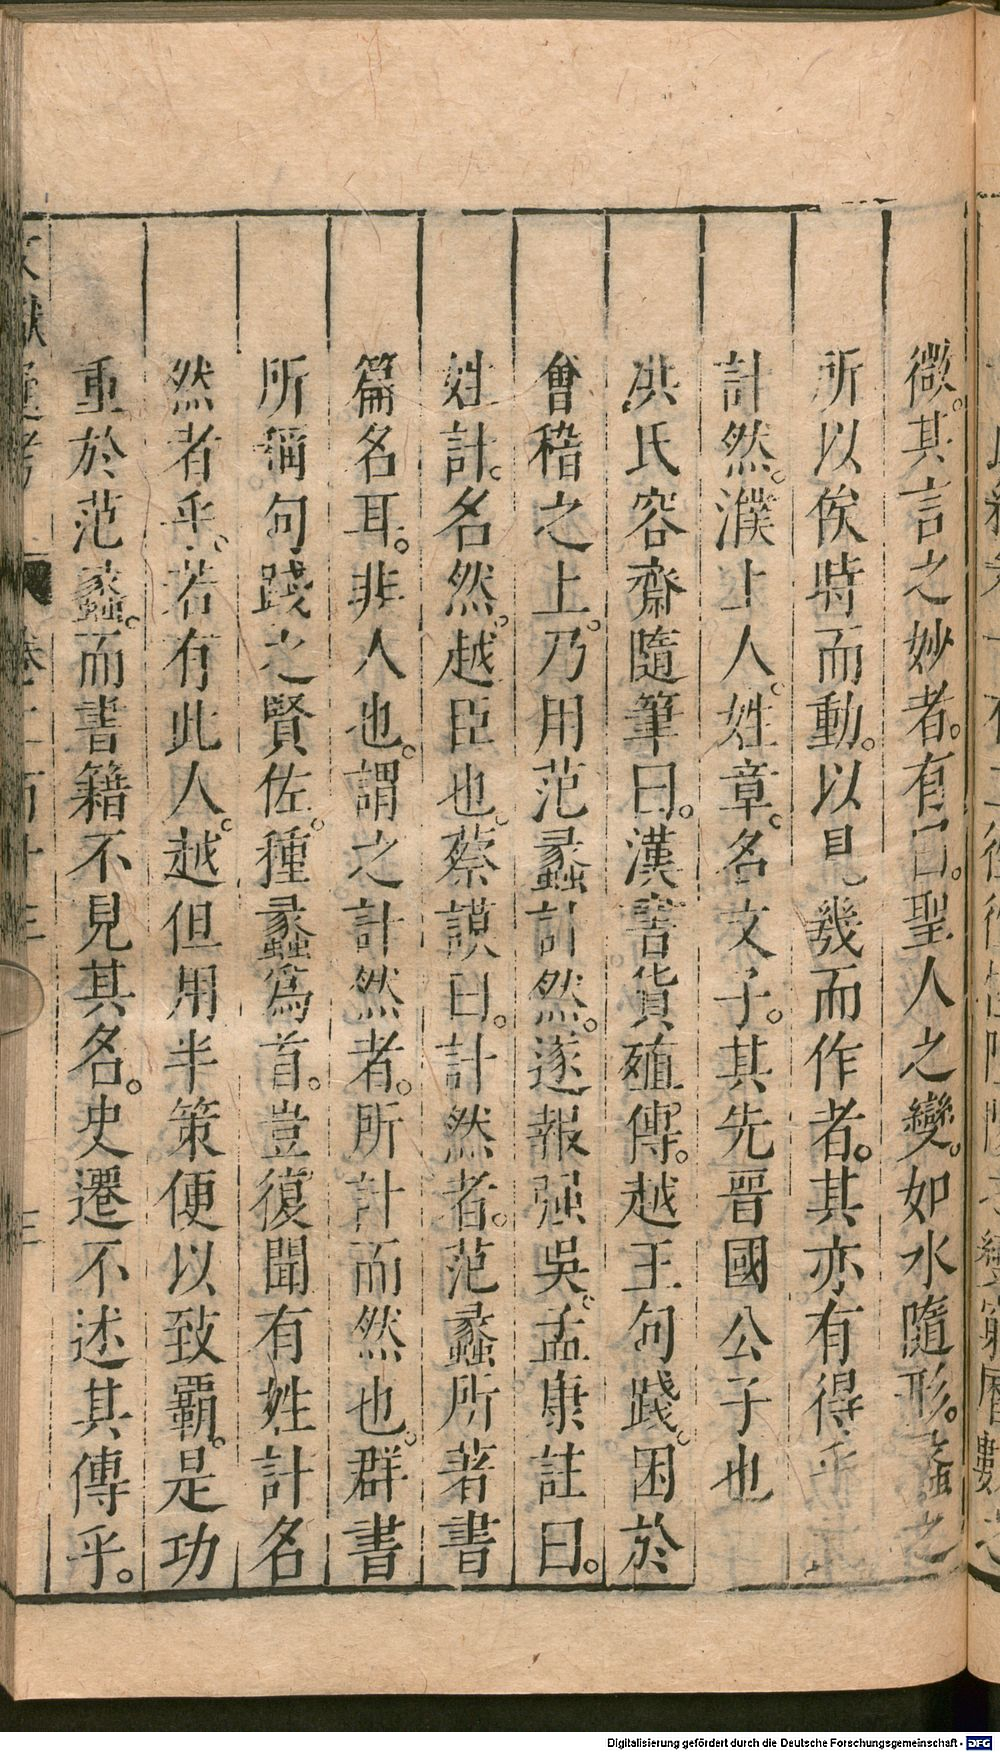 微。其言之妙者。有曰。聖人之變。如水隨形。蠡之
所以俟時而動。以見幾而作者。其亦有得乎
計然。濮上人。姓章。名文子。其先晉國公子也
洪氏容齋隨筆曰。漢書貨殖傳。越王句踐。困於
會稽之上。乃用范蠡計然。遂報强吳。孟康註曰。
姓計。名然。越臣也。蔡謨曰。計然者。范蠡所著書
篇名耳。非人也。謂之計然者。所計而然也。群書
所稱句踐之賢佐。種蠡爲首。豈復聞有姓計名
然者乎。若有此人。越但用半策便以致霸。是功
重於范蠡。而書籍不見其名。史遷不述其傳乎。
Digitalisierung gefördert durch die Deutsche Forschungsgemeinschaft - DFG